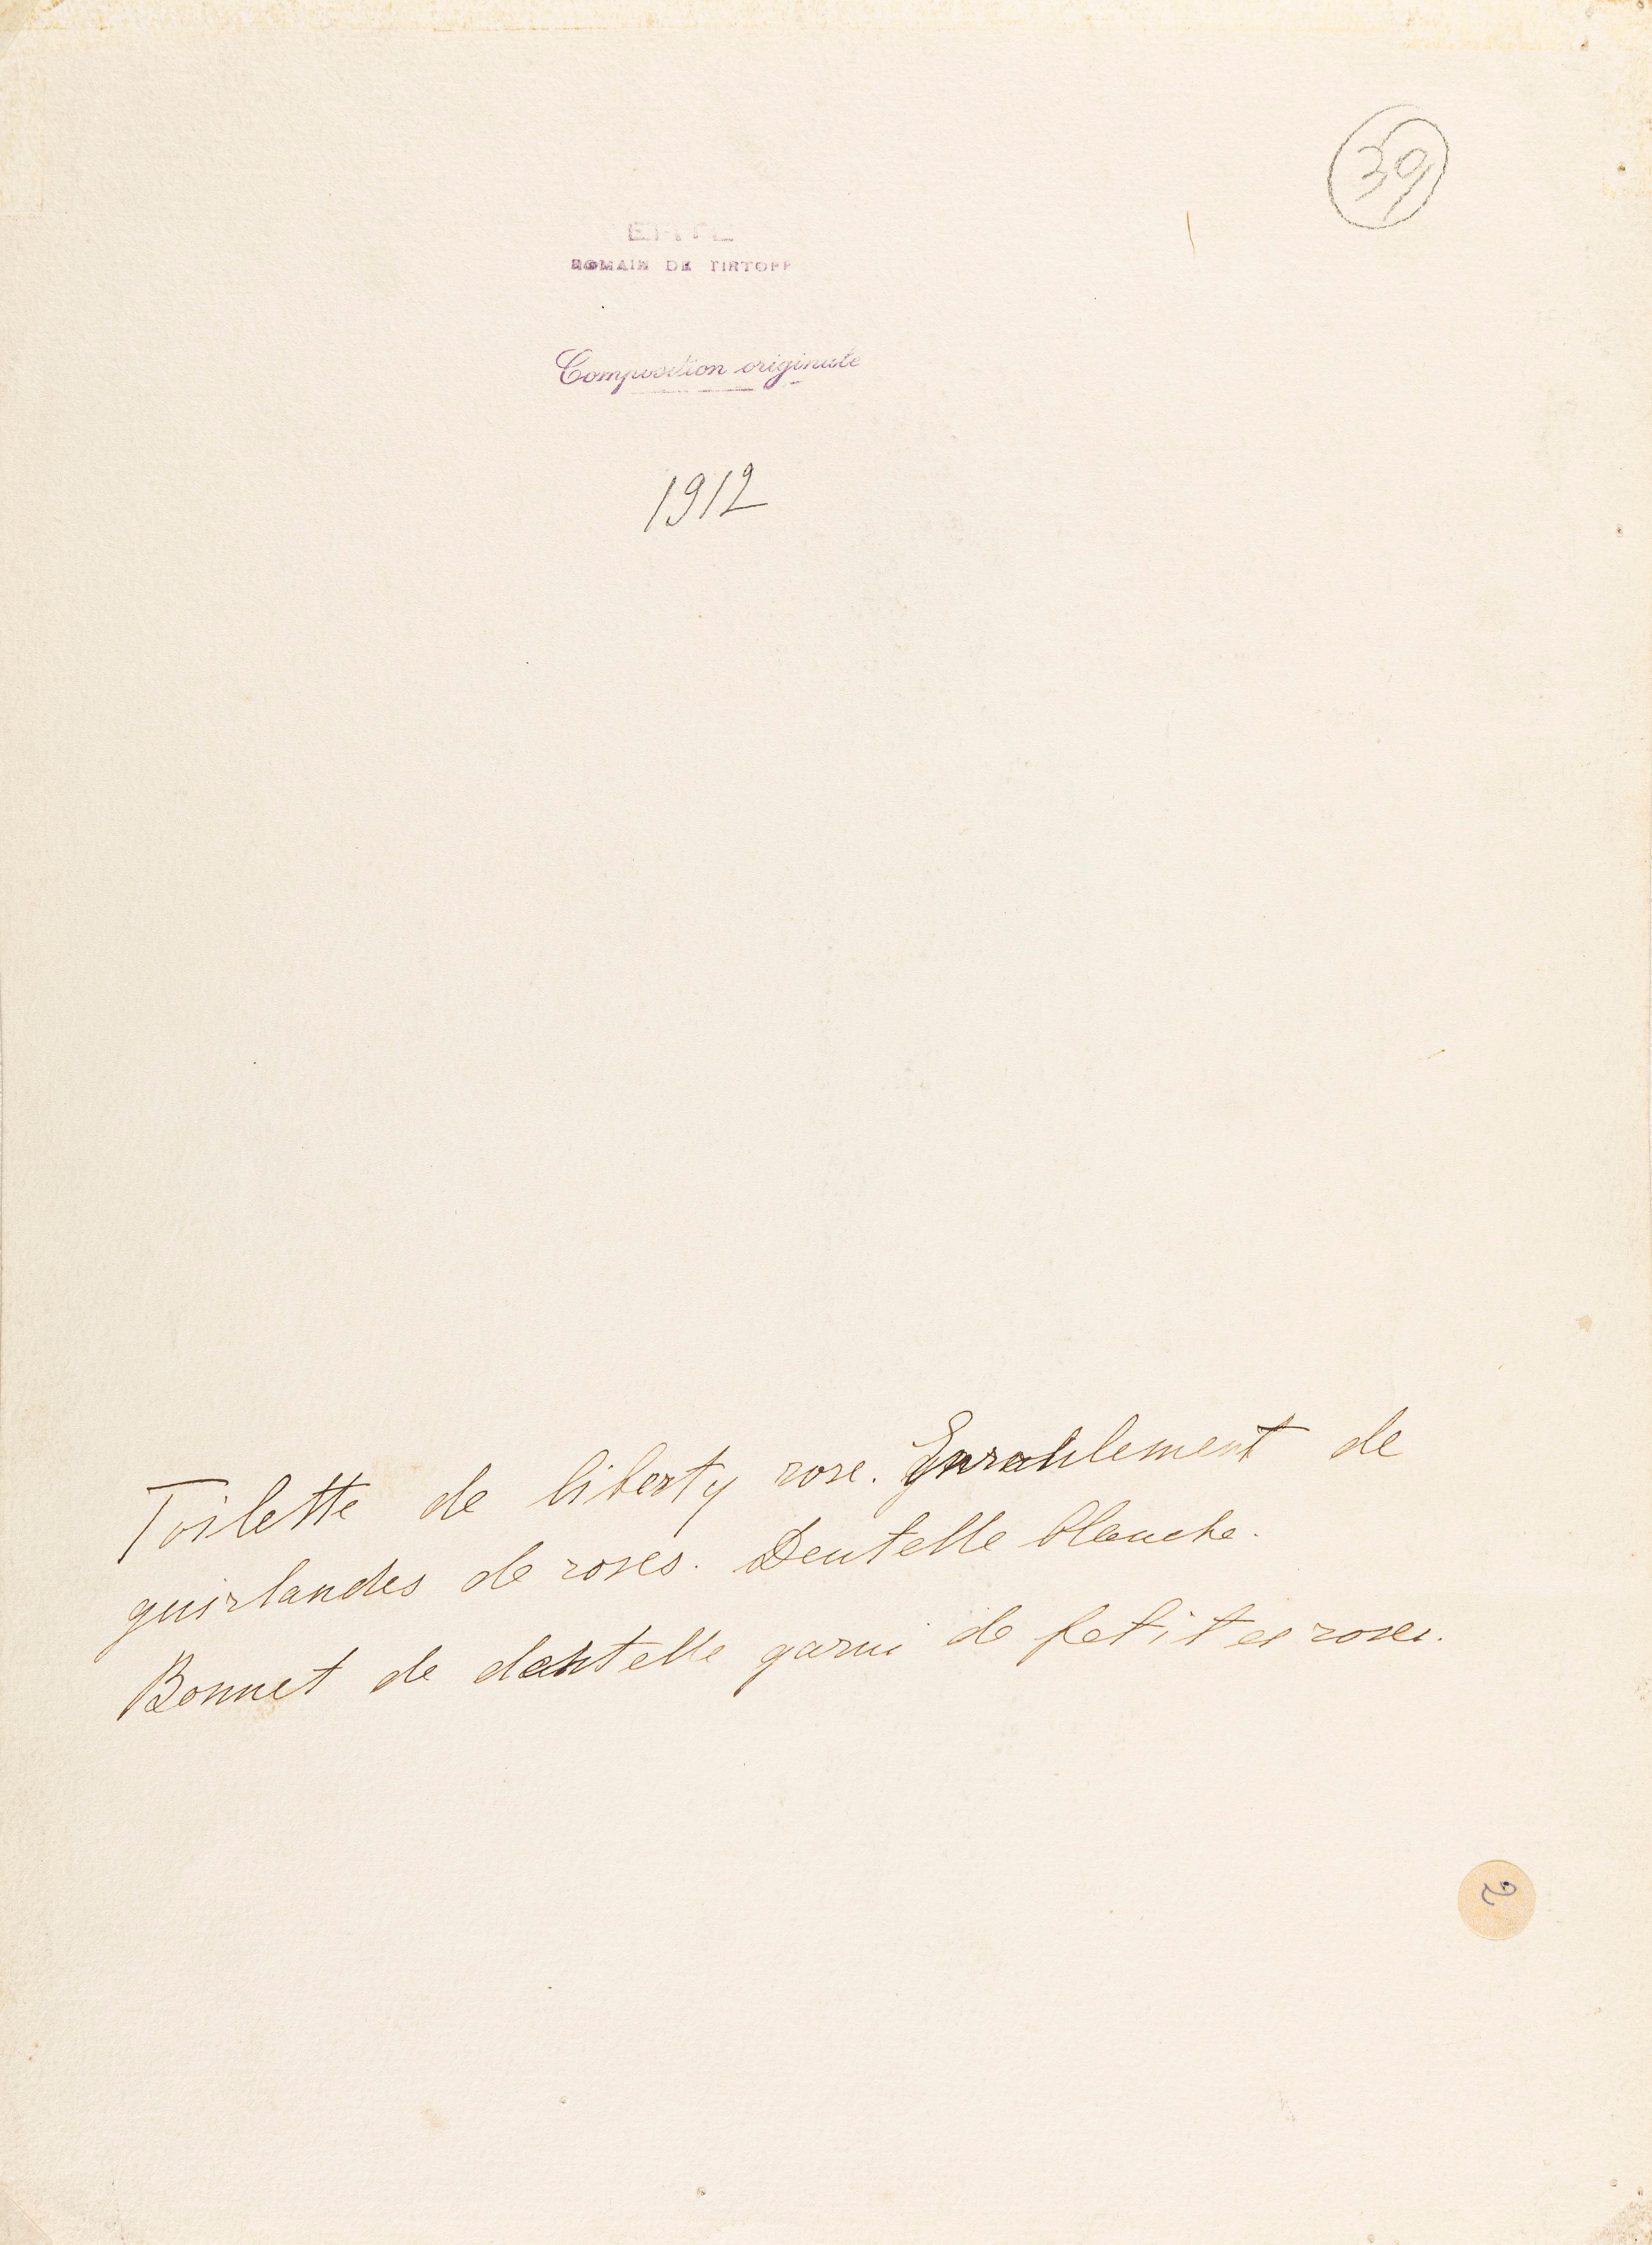 39
ERTÉ
ROMAIN DE TIRTOFF
Composition originale
1912
Toilette de liberty rose. de
guirlandes de roses. Dentelle blanche.
Bonnet de dentelle garni de petites roses.
2